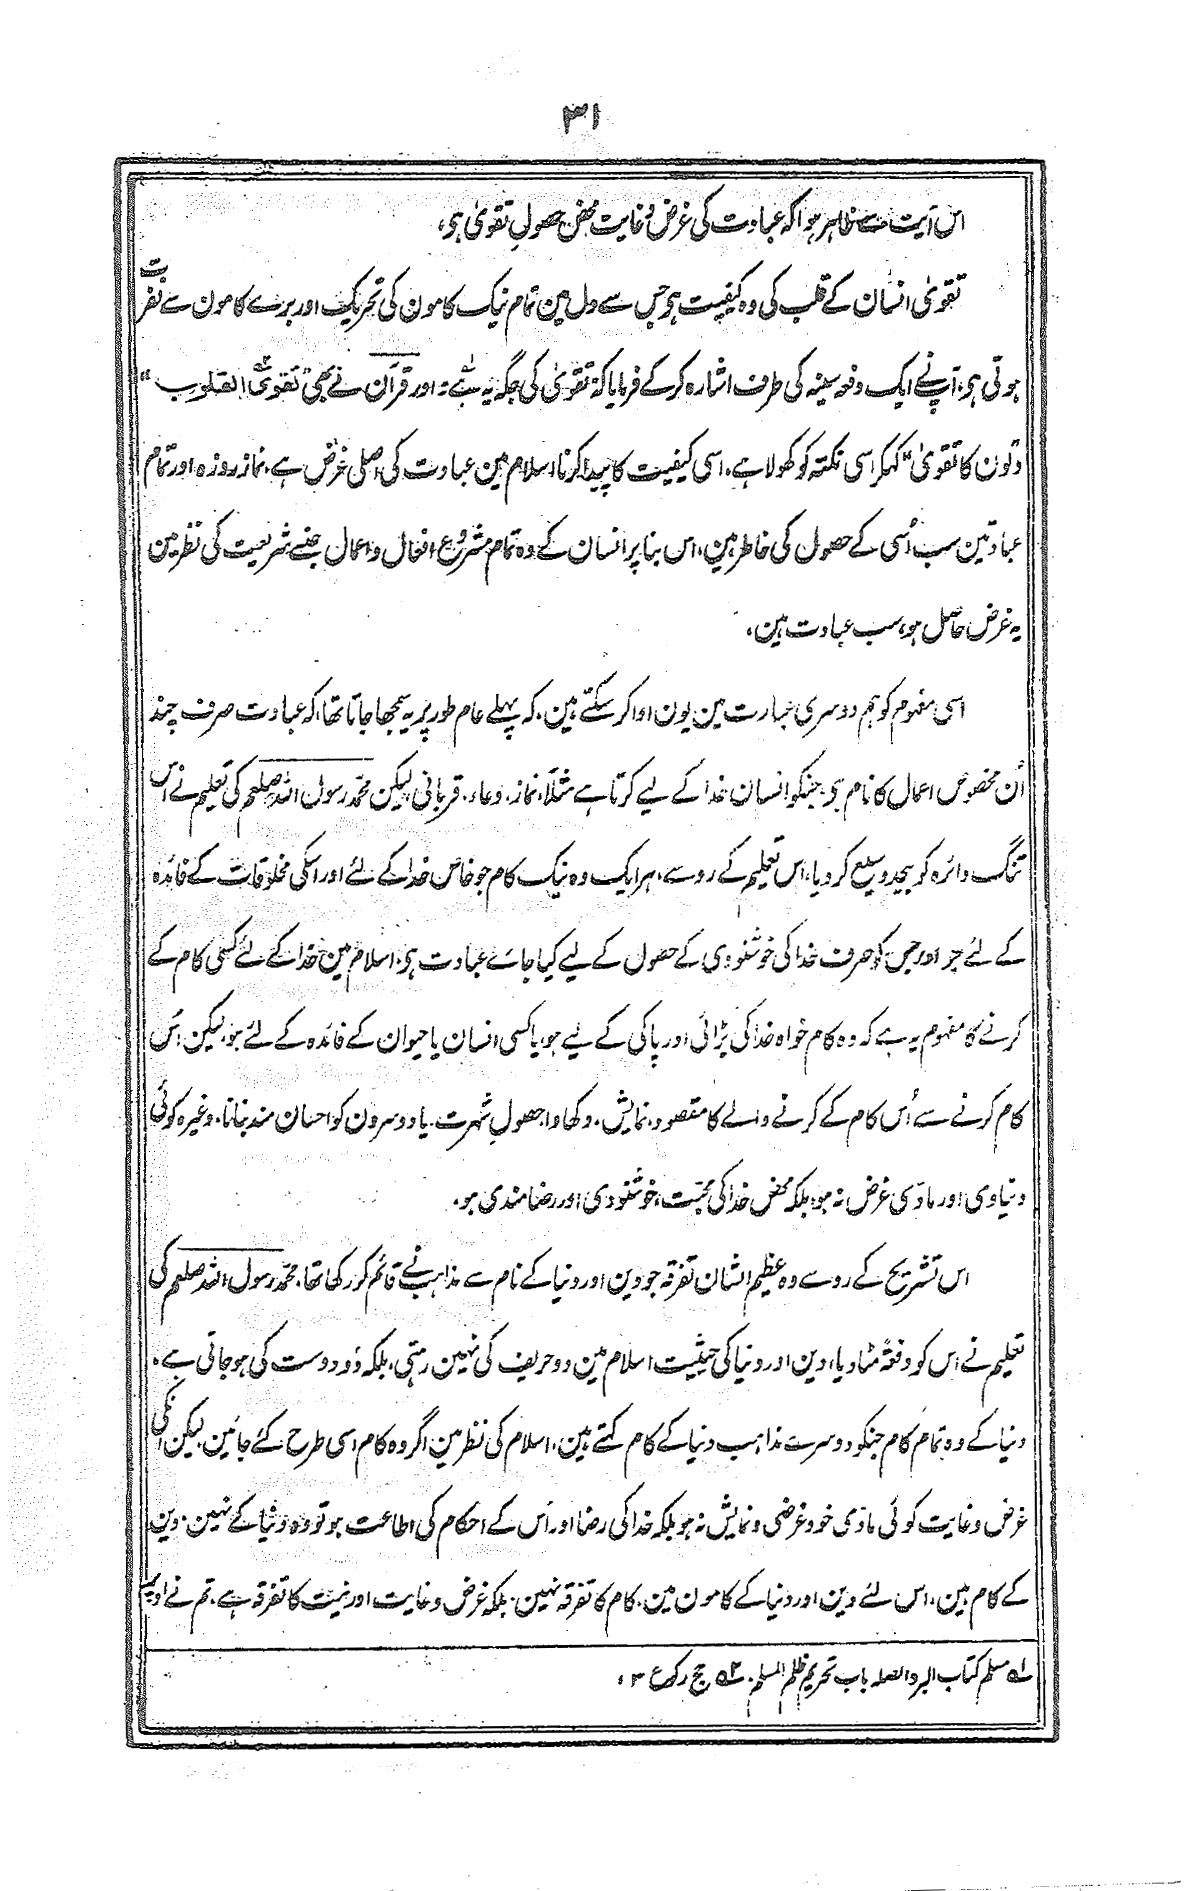 ۳۱
اس آیت سے ظاہر ہوا کہ عبادت کی غرض و غایت محض حصولِ تقویٰ ہی،
تقویٰ انسان کے قلب کی وہ کیفیت ہی جس سے دل مین تمام نیک کامون کی تحریک اور برے کامون سے نفرت
ہوتی ہی، آپ نے ایک دفعہ سینہ کی طرف اشارہ کرکے فرمایا کہ تقویٰ کی جگہ یہ ہے۔ اور قرآن نے بھی ”تقوی القلوب“
”دلون کا تقویٰ“ کہکر اسی نکتہ کو کھولا ہے، اسی کیفیت کا پیدا کرنا اسلام مین عبادت کی اصلی غرض ہے، نماز روزہ اور تمام
عبادتین سب اُسی کے حصول کی خاطر ہین، اس بنا پر انسان کے وہ تمام مشروع افعال و اعمال جنسے شریعت کی نظر مین
یہ غرض حاصل ہو، سب عبادت ہین،
اسی مفہوم کو ہم دوسری عبارت مین یون ادا کر سکتے ہین، کہ پہلے عام طور پر یہ سمجھا جاتا تھا، کہ عبادت صرف چند
اُن مخصوص اعمال کا نام ہی، جنکو انسان خدا کے لیے کرتا ہے مثلاً، نماز، دعاء، قربانی، لیکن محمد رسول اللہ صلعم کی تعلیم نے اس
تنگ دائرہ کو بیحد وسیع کر دیا، اس تعلیم کے رو سے، ہر ایک وہ نیک کام جو خاص خدا کے لئے اور اسکی مخلوقات کے فائدہ
کے لئے ہو اور جس کو صرف خدا کی خوشنودی کے حصول کے لیے کیا جائے عبادت ہی، اسلام مین خدا کے لئے کسی کام کے
کرنے کا مفہوم یہ ہے کہ وہ کام خواہ خدا کی بڑائی اور پاکی کے لیے ہو، یا کسی انسان یا حیوان کے فائدہ کے لئے ہو، لیکن اس
کام کرنے سے اُس کام کے کرنے والے کا مقصود، نمایش، دکھاوا، حصولِ شہرت، یا دوسرون کو احسان مند بنانا، وغیرہ کوئی
دنیاوی اور مادّی غرض نہ ہو، بلکہ محض خدا کی محبت، خوشنودی اور رضامندی ہو،
اس تشریح کے رو سے وہ عظیم الشان تفرقہ جو دین اور دنیا کے نام سے مذاہب نے قائم کر رکھا تھا، محمد رسول اللہ صلعم کی
تعلیم نے اس کو دفعۃً مٹا دیا، دین اور دنیا کی حیثیت اسلام مین دو حریف کی نہین رہتی، بلکہ دو دوست کی ہو جاتی ہے،
دنیا کے وہ تمام کام جنکو دوسرے مذاہب دنیا کے کام کہتے ہین، اسلام کی نظر مین اگر وہ کام اسی طرح کئے جائین، لیکن انکی
غرض و غایت کوئی مادّی خود غرضی و نمایش نہ ہو بلکہ خدا کی رضا اور اُس کے احکام کی اطاعت ہو تو وہ دنیا کے نہین، دین
کے کام ہین، اس لئے دین اور دنیا کے کامون مین، کام کا تفرقہ نہین، بلکہ غرض و غایت اور نیت کا تفرقہ ہے، تم نے اوپر
۱؎ مسلم کتاب البر والصلہ باب تحریم ظلم المسلم، ۲؎ حج رکوع ۳،